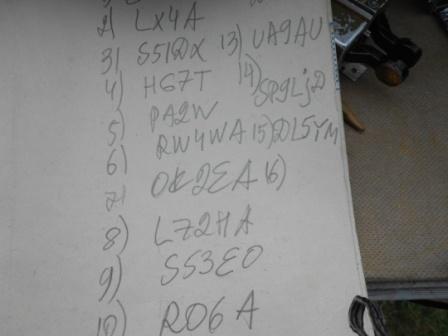 2) LX4A
3) S51DX 13) UA9AU
4) HG7T 14) SP9LjD
5) PA2W
6) RW4WA 15) DL5YM
7) OK2EA 16)
8) LZ2HA
9) S53EO
10) RO6A